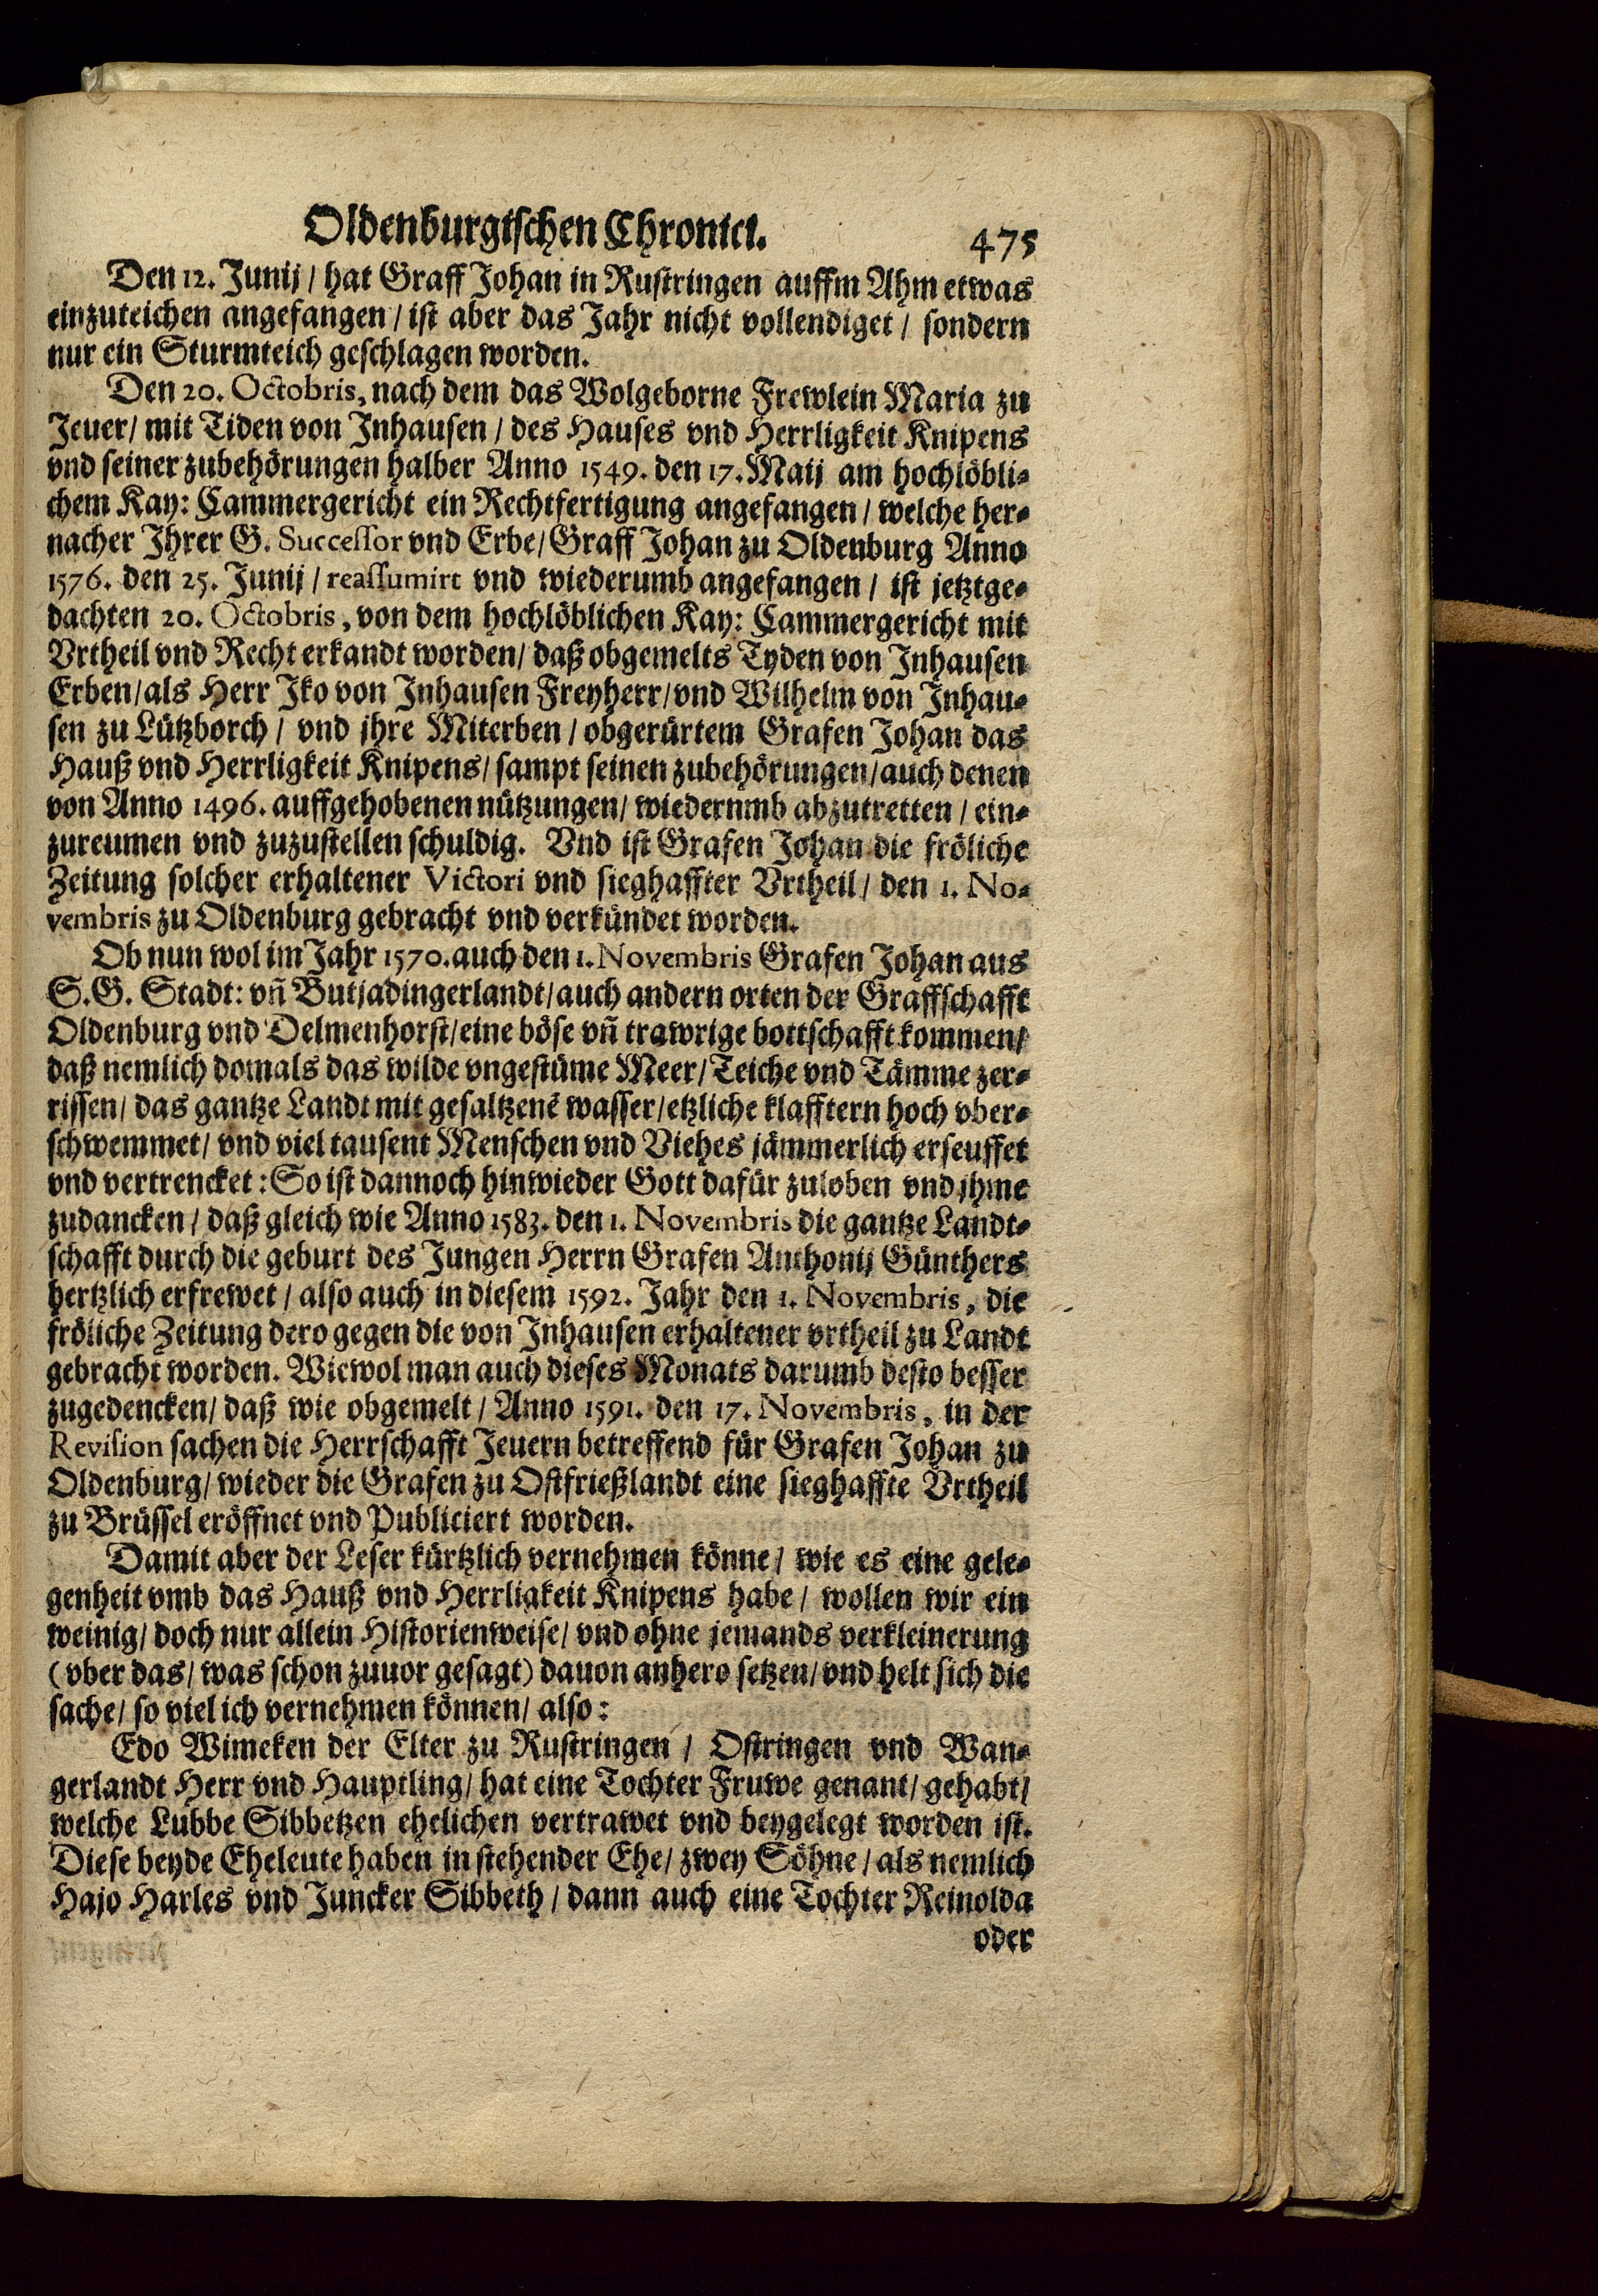 Oldenburgischen Chronici. 475
Den 12. Junij / hat Graff Johan in Rustringen auffm Ahm etwas
einzuteichen angefangen / ist aber das Jahr nicht vollendiget / sondern
nur ein Sturmteich geschlagen worden.
Den 20. Octobris, nach dem das Wolgeborne Frewlein Maria zu
Jeuer / mit Tiden von Inhausen / des Hauses vnd Herrligkeit Knipens
vnd seiner zubehörungen halber Anno 1549. den 17. Maij am hochlöbli-
chem Kay: Cammergericht ein Rechtfertigung angefangen / welche her-
nacher Ihrer G. Successor vnd Erbe / Graff Johan zu Oldenburg Anno
1576. den 25. Junij / reassumirt vnd wiederumb angefangen / ist jetztge-
dachten 20. Octobris, von dem hochlöblichen Kay: Cammergericht mit
Vrtheil vnd Recht erkandt worden / daß obgemelts Tyden von Inhausen
Erben / als Herr Iko von Inhausen Freyherr / vnd Wilhelm von Inhau-
sen zu Lützborch / vnd ihre Miterben / obgerürtem Grafen Johan das
Hauß vnd Herrligkeit Knipens / sampt seinen zubehörungen / auch denen
von Anno 1496. auffgehobenen nützungen / wiedernmb abzutretten / ein-
zureumen vnd zuzustellen schuldig. Vnd ist Grafen Johan die fröliche
Zeitung solcher erhaltener Victori vnd sieghaffter Vrtheil / den 1. No-
vembris zu Oldenburg gebracht vnd verkündet worden.
Ob nun wol im Jahr 1570. auch den 1. Novembris Grafen Johan aus
S. G. Stadt: vñ Butjadingerlandt / auch andern orten der Graffschafft
Oldenburg vnd Delmenhorst / eine böse vñ trawrige bottschafft kommen /
daß nemlich domals das wilde vngestüme Meer / Teiche vnd Tämme zer-
rissen / das gantze Landt mit gesaltzenē wasser / etzliche klafftern hoch vber-
schwemmet / vnd viel tausent Menschen vnd Viehes jämmerlich erseuffet
vnd vertrencket: So ist dannoch hinwieder Gott dafür zuloben vnd ihme
zudancken / daß gleich wie Anno 1583. den 1. Novembris die gantze Landt-
schafft durch die geburt des Jungen Herrn Grafen Anthonij Günthers
hertzlich erfrewet / also auch in diesem 1592. Jahr den 1. Novembris, die
fröliche Zeitung dero gegen die von Inhausen erhaltener vrtheil zu Landt
gebracht worden. Wiewol man auch dieses Monats darumb desto besser
zugedencken / daß wie obgemelt / Anno 1591. den 17. Novembris, in der
Revision sachen die Herrschafft Jeuern betreffend für Grafen Johan zu
Oldenburg / wieder die Grafen zu Ostfrießlandt eine sieghaffte Vrtheil
zu Brüssel eröffnet vnd Publiciert worden.
Damit aber der Leser kürtzlich vernehmen könne / wie es eine gele-
genheit vmb das Hauß vnd Herrligkeit Knipens habe / wollen wir ein
weinig / doch nur allein Historienweise / vnd ohne jemands verkleinerung
(vber das / was schon zuuor gesagt) dauon anhero setzen / vnd helt sich die
sache / so viel ich vernehmen können / also:
Edo Wimeken der Elter zu Rustringen / Ostringen vnd Wan-
gerlandt Herr vnd Hauptling / hat eine Tochter Fruwe genant / gehabt /
welche Lubbe Sibbetzen ehelichen vertrawet vnd beygelegt worden ist.
Diese beyde Eheleute haben in stehender Ehe / zwey Söhne / als nemlich
Hajo Harles vnd Juncker Sibbeth / dann auch eine Tochter Reinolda
oder